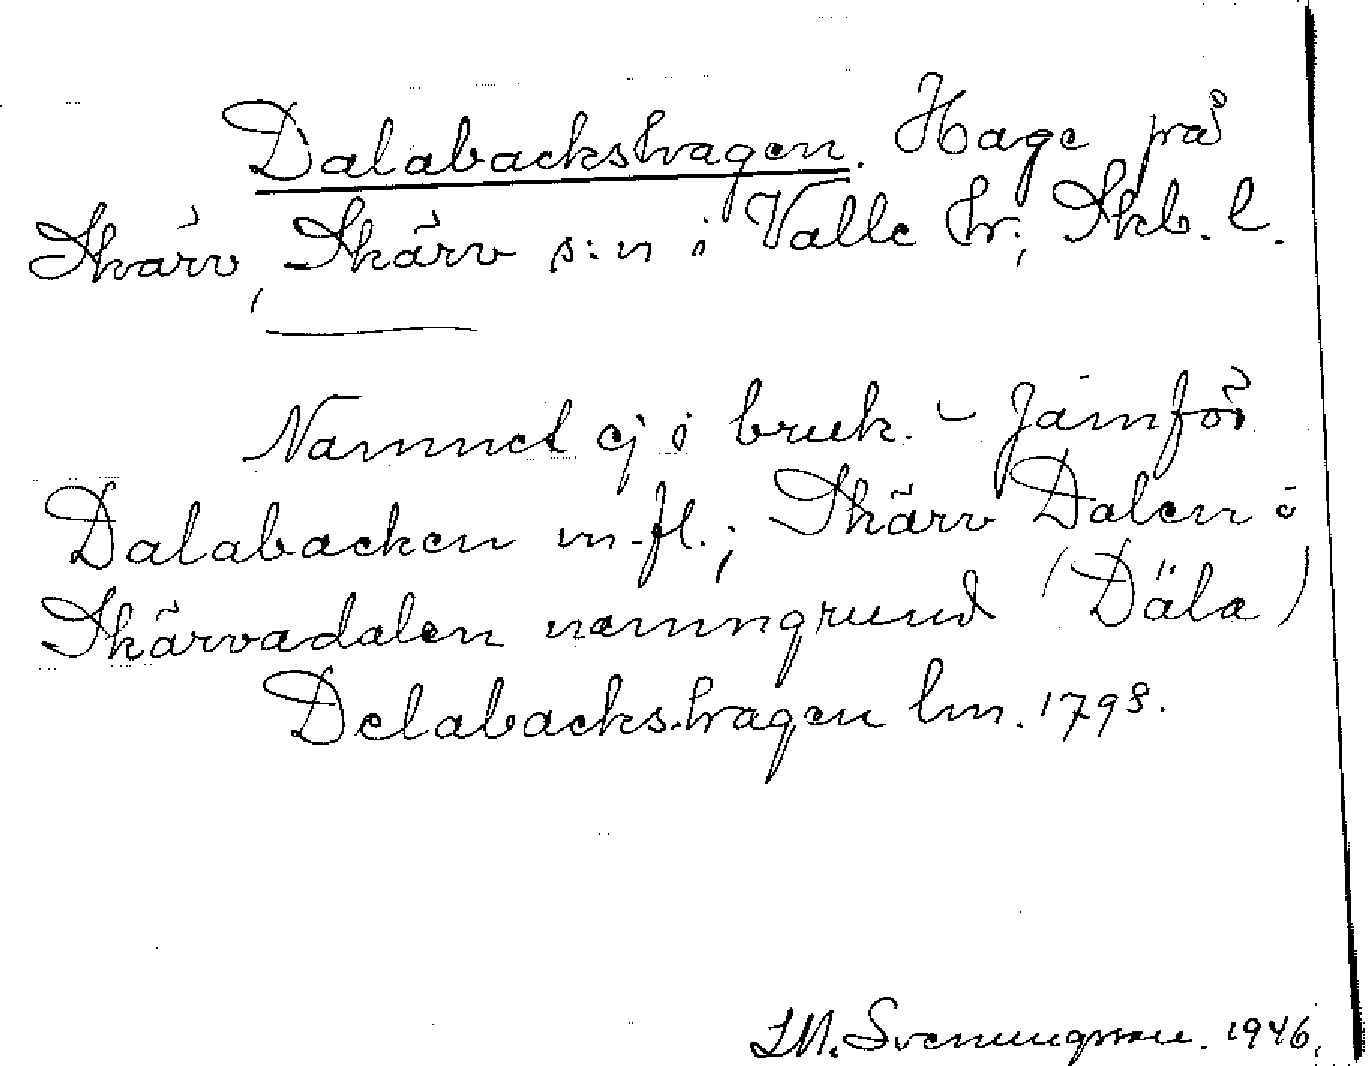 Dalabackshagen. Hage på
Skärv, Skärv s:n i Valle hr; Skb. l.
Namnet ej i bruk. - Jämför
Dalabacken m.fl.; Skärv Dalen ö
Skärvadalen namngrund (Däla)
Delabackshagen lm. 1793.
LM. Svenungsson. 1946.